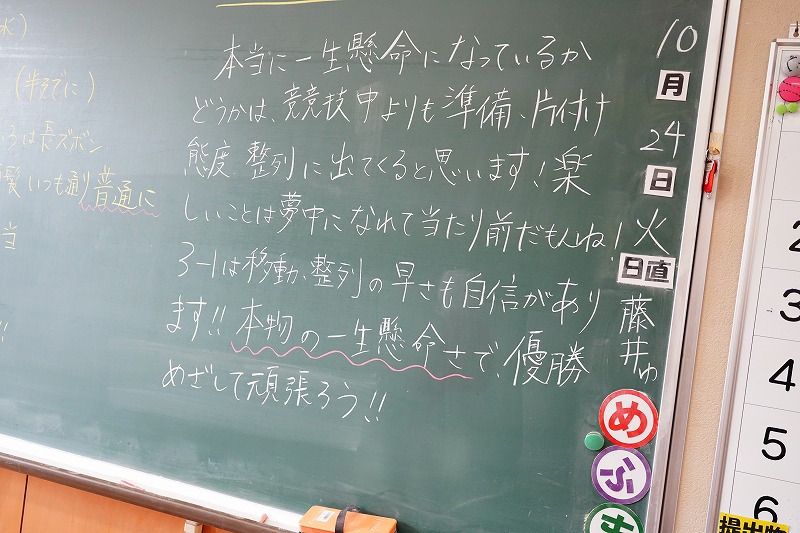 本当に一生懸命になっているか
どうかは、競技中よりも準備、片付け
態度、整列に出てくると思います!楽
しいことは夢中になれて当たり前だもんね!
3-1は移動、整列の早さも自信があり
ます!!本物の一生懸命さで、優勝
めざして頑張ろう!!
10
月
24
日
火
日直
藤井ゆ
いつも通り普通に
は長ズボン
当
!!
め
ふ
2
3
4
5
6
提出物